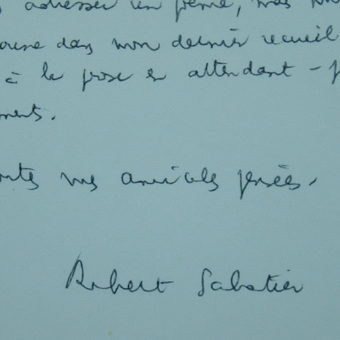 adresser un poème, mais
dans mon dernier recueil
à la prose en attendant -
toutes mes amicales pensées.
Robert Sabatier